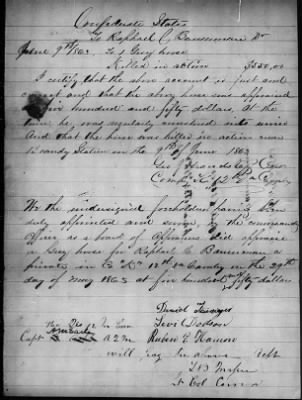 Confederate States
To Raphael C. Bauserman Dr
June 9th 1863 To 1 Grey horse
Killed in action $550.00
I certify that the above account is just and
correct and that the above horse was appraised
at five hundred and fifty dollars. At the
time he was regularly mustered into service
And that the horse was killed in action near
Brandy Station on the 9th of June 1863
Geo Capt
Comg Co 12th
We the undersigned freeholders having been
duly appointed and sworn, by the commanding
officer, as a board of Appraisers did appraise
a Grey horse for Raphael C Bauserman a
private in Co K 12th Va Cavalry on the 29th
day of May 1863 at five hundred fifty dollars
Daniel
Levi Dodson
Capt A.Q.M. Ruben
will pay the above
Lt Col